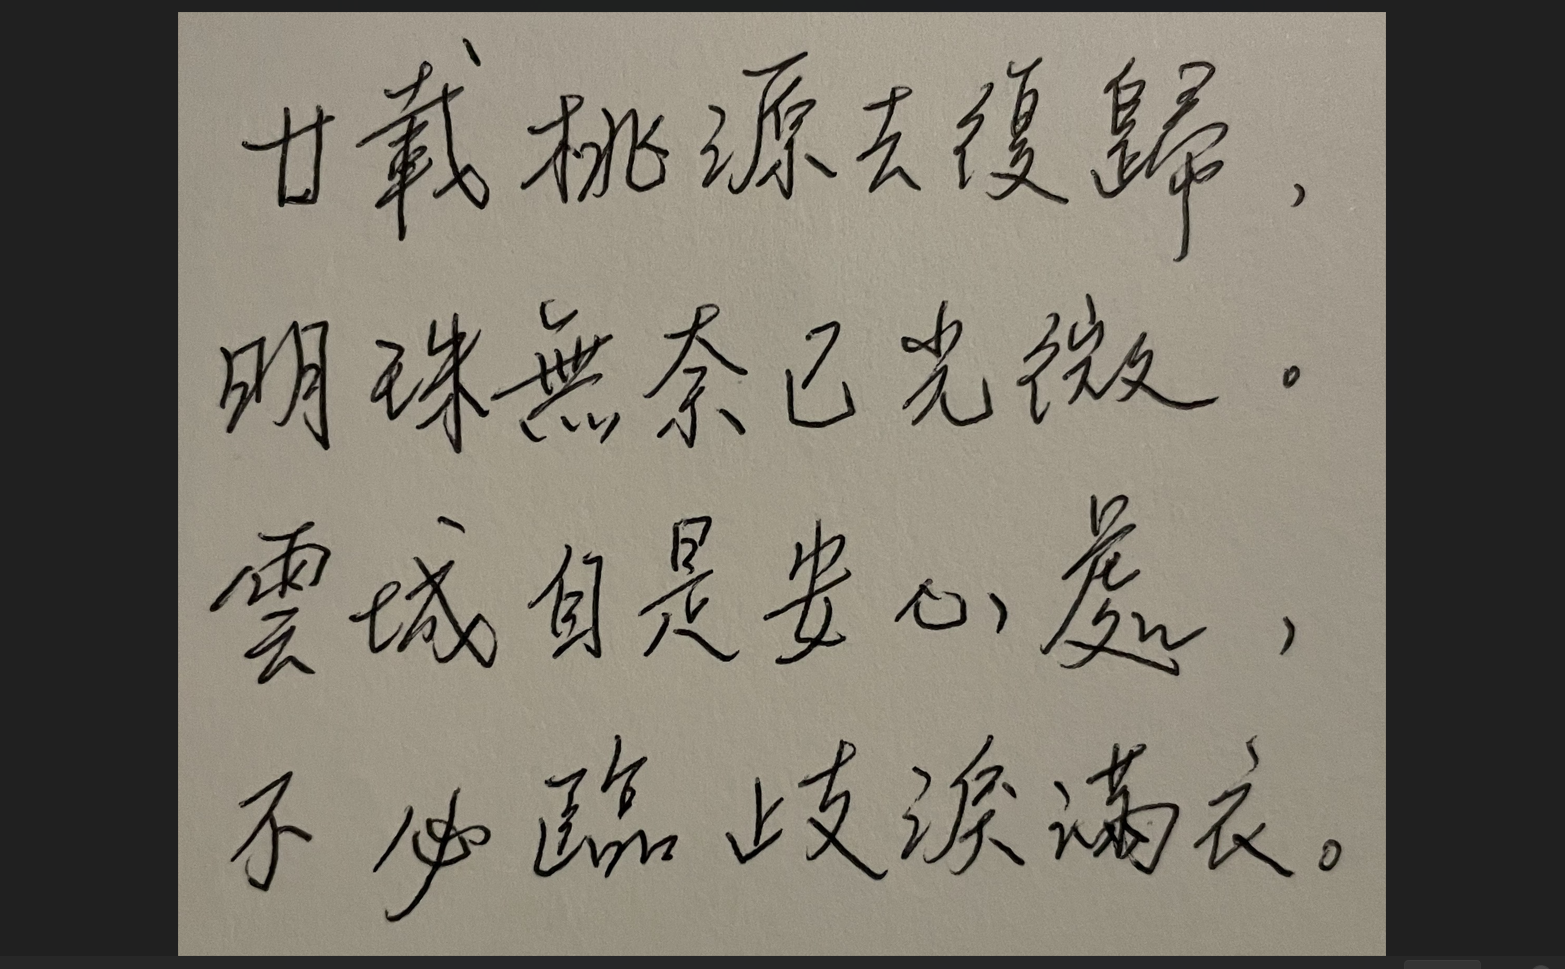 廿載桃源去復歸，
明珠無奈已光微。
雲城自是安心處，
不必臨歧淚滿衣。